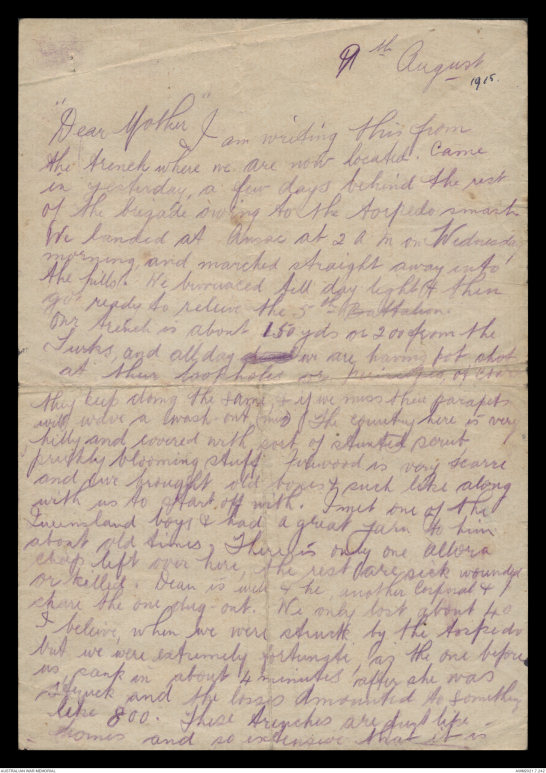 9th August
1915.
"Dear Mother" I am writing this from
the trench where we are now located. Came
in yesterday, a few days behind the rest
of the brigade owing to the torpedo smart.
We landed at Anzac at 2 A M on Wednesday
morning and marched straight away into
the hills. We bivuaced till day light & then
got ready to relieve the 5th Battalion.
Our trench is about 150 yds or 200 from the
Turks, and all day we are having pot shot
at their loopholes or of course
they keep doing the same & if we miss their parapets
will wave a wash out The country here is very
hilly and covered with sort of stunted scrub
prickly blooming stuff. Firewood is very scarce
and we brought old boxes & such like along
with us to start off with. I met one of the
Queensland boys & had a great yarn to him
about old times. There is only one Allora
chap left over here, the rest are sick wounded
or killed. Dean is well & he, another Corporal & I
share the one dug-out. We only lost about 40
I believe, when we were struck by the torpedo
but we were extremely fortunate as the one before
us sank in about 4 minutes after she was
struck and the losses amounted to something
like 800. These trenches are just like
homes and so extensive that it is
AUSTRALIAN WAR MEMORIAL
AWM2021.7.242